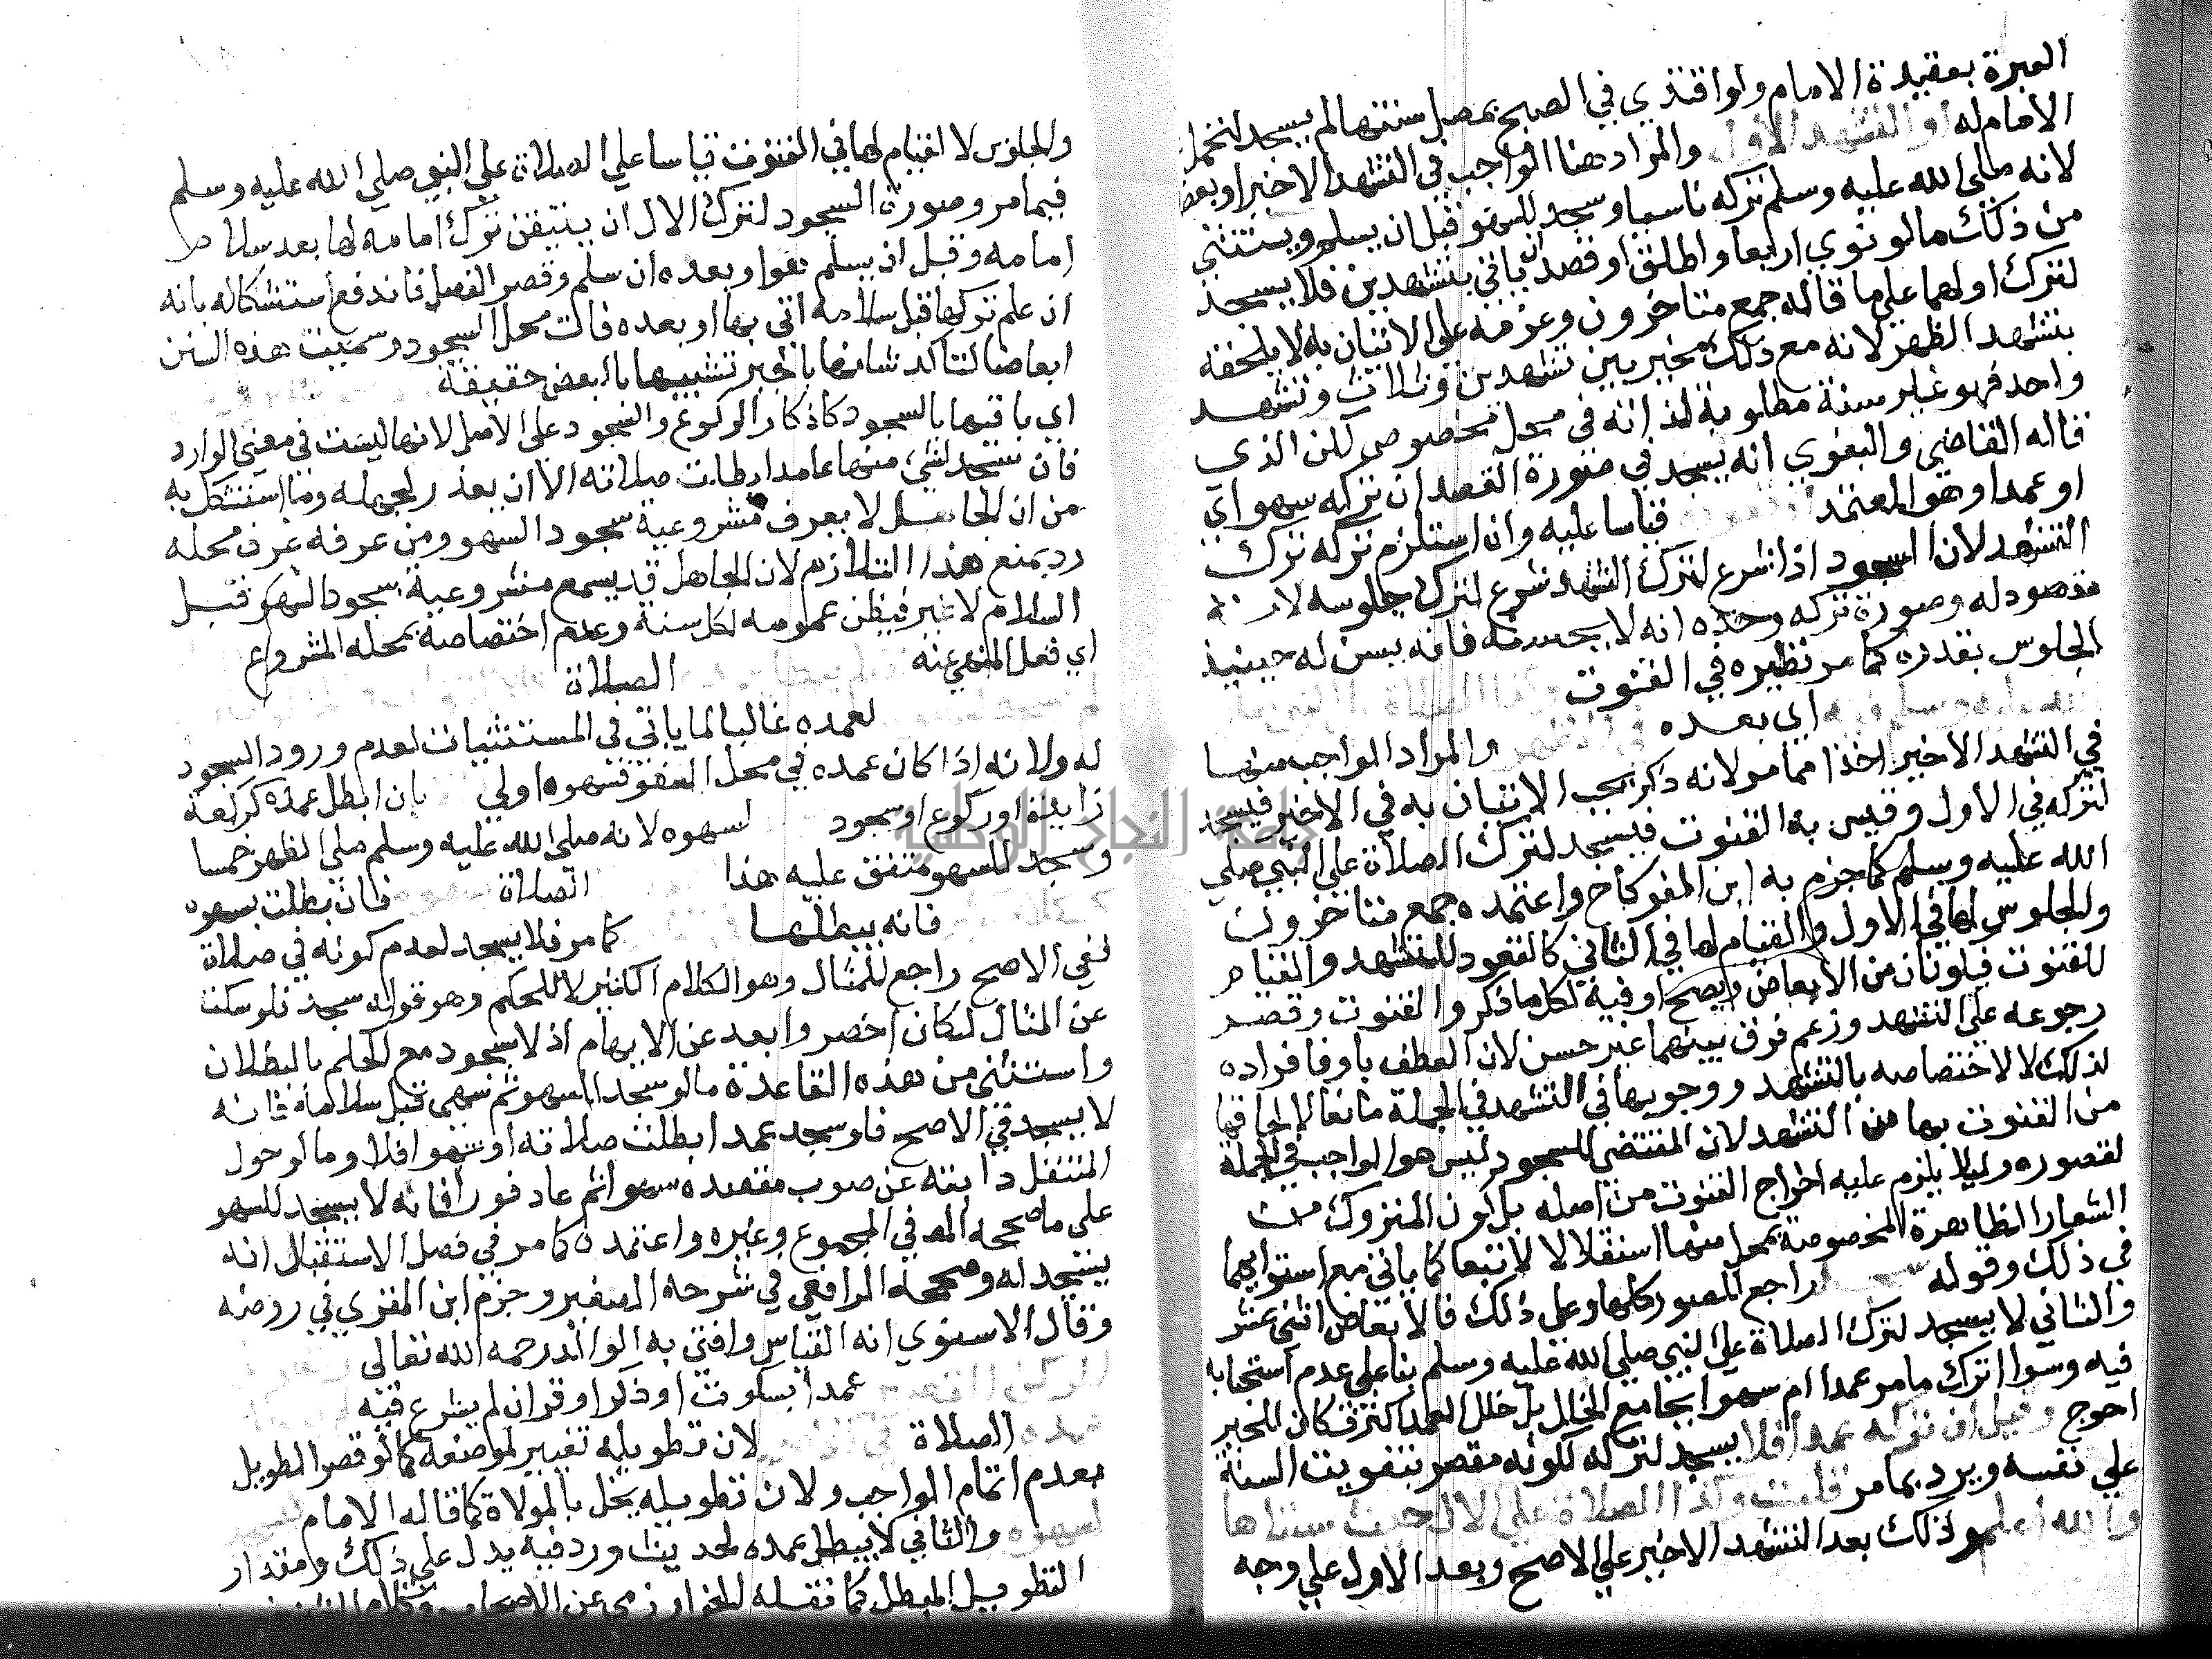 العبرة بعقيدة الامام ولو اقتدي في الصبح بمصل سنتها لم يسجد لتحمل
الامام له او التشهد الاول والمراد هنا الواجب في التشهد الاخير او بعضه
لانه صلي الله عليه وسلم تركه ناسيا وسجد للسهو قبل ان يسلم ويستثني
من ذلك ما لو نوي اربعا واطلق او قصد ان ياتي بتشهدين فلا يسجد
لترك اولهما علي ما قاله جمع متاخرون وعزمه علي الاتيان به لا يلحقه
بتشهد الظهر لانه مع ذلك مخير بين تشهدين وثلاث وتشهد
واحد فهو غير سنة مطلوبة لذاته في محل مخصوص لكن الذي
قاله القاضي والبغوي انه يسجد في صورة القصد ان تركه سهوا اي
او عمدا وهو المعتمد قياسا عليه وان استلزم تركه ترك
التشهد لان السجود اذا شرع لترك التشهد شرع لترك جلوسه لانه
مقصود له وصورة تركه وحده انه لا يحسنه فانه يسن له حينيذ
الجلوس بقدره كما مر نظيره في القنوت
اي بعده والمراد الواجب منها
في التشهد الاخير اخذا مما مر لانه ذكر يجب الاتيان به في الاخير فيسجد
لتركه في الاول وقيس به القنوت فيسجد لترك الصلاة علي النبي صلي
الله عليه وسلم كما جزم به ابن المفركاح واعتمده جمع متاخرون
والجلوس لها في الاول والقيام لها في الثاني كالقعود للتشهد والقيام
للقنوت فيكونان من الابعاض ويصح او فيه لكل ما ذكر والقنوت وقصر
رجوعه علي التشهد وزعم فرق بينهما غير حسن لان العطف باو فافراده
لذلك لا لاختصاصه بالتشهد ووجوبها في التشهد في الجملة مانعا لالحاقها
من القنوت بها من التشهد لان المقتضي للسجود ليس هو الواجب في الجملة
لقصوره وليلا يلزم عليه اخراج القنوت من اصله بل كون المتروك من
الشعار الظاهرة المخصوصة بمحل منها استقلالا لا تبعا كما ياتي مع استوايهما
في ذلك وقوله سجد راجع للصور كلها وعلي ذلك فالابعاض اثني عشر
والثاني لا يسجد لترك الصلاة علي النبي صلي الله عليه وسلم بنا علي عدم استحبابه
فيه وسوا اترك ما مر عمدا ام سهوا بجامع الخلل بل خلل العمد اكثر فكان للجبر
احوج وقيل ان تركه عمدا فلا يسجد لتركه لكونه مقصر بتفويت السنة
علي نفسه ويرد بما مر قلت وكذا الصلاة علي الال حيث سنناها
والله اعلم وذلك بعد التشهد الاخير علي الاصح وبعد الاول علي وجه
والجلوس لا القيام لها في القنوت قياسا علي الصلاة علي النبي صلي الله عليه وسلم
فيما مر وصورة السجود لترك الال ان يتيقن ترك امامه لها بعد سلام
امامه وقبل ان يسلم هو او بعده ان سلم وقصر الفصل فاندفع استشكاله بانه
ان علم تركها قبل سلامه اتي بها او بعده فات محل السجود وسميت هذه السنن
ابعاضا لتاكد شانها بالجبر تشبيها بالبعض حقيقة
اي باقيها بالسجود كاذكار الركوع والسجود علي الاصل لانها ليست في معني الوارد
فان سجد لشيء منها عامدا بطلت صلاته الا ان يعذر لجهله وما استشكل به
من ان الجاهل لا يعرف مشروعية سجود السهو ومن عرفه عرف محله
رد بمنع هذا التلازم لان الجاهل قد يسمع مشروعية سجود السهو قبل
السلام لا غير فيظن عمومه لكل سنة وعدم اختصاصه بمحله المشروع
اي فعل المنهي عنه الصلاة
لعمده غالبا لما ياتي في المستثنيات لعدم ورود السجود
له ولانه اذا كان عمده في محل العفو فسهوه اولي بان ابطل عمده كركعة
زايدة او ركوع او سجود لسهوه لانه صلي الله عليه وسلم صلي الظهر خمسا
وسجد للسهو متفق عليه هذا الصلاة فان بطلت بسهوه
فانه يبطلها كما مر فلا يسجد لعدم كونه في صلاة
ففي الاصح راجع للمثال وهو الكلام الكثير لا للحكم وهو قوله سجد فلو سكت
عن المثال لكان اخصر وابعد عن الابهام اذ لا سجود مع الحكم بالبطلان
واستثني من هذه القاعدة ما لو سجد للسهو ثم سهي قبل سلامه فانه
لا يسجد في الاصح فلو سجد عمدا بطلت صلاته او سهوا فلا وما لو حول
المتنفل دابته عن صوب مقصده سهوا ثم عاد فورا فانه لا يسجد للسهو
علي ما صححه المص في المجموع وغيره واعتمدن كما مر في فصل الاستقبال انه
يسجد له وصححه الرافعي في شرحه الصغير وجزم ابن المقري في روضه
وقال الاسنوي انه القياس وافتي به الوالد رحمه الله تعالى
عمدا بسكوت او ذكر او قران لم يشرع فيه
الصلاة لان تطويله تغيير لموضعه كما لو قصر الطويل
بعدم اتمام الواجب ولان تطويله يخل بالمولاة كما قاله الامام
لسهوه والثاني لا يبطل عمده لحديث ورد فيه يدل علي ذلك ومقدار
التطويل المبطل كما نقله الخوارزمي عن الاصحاب
جامعة النجاح الوطنية